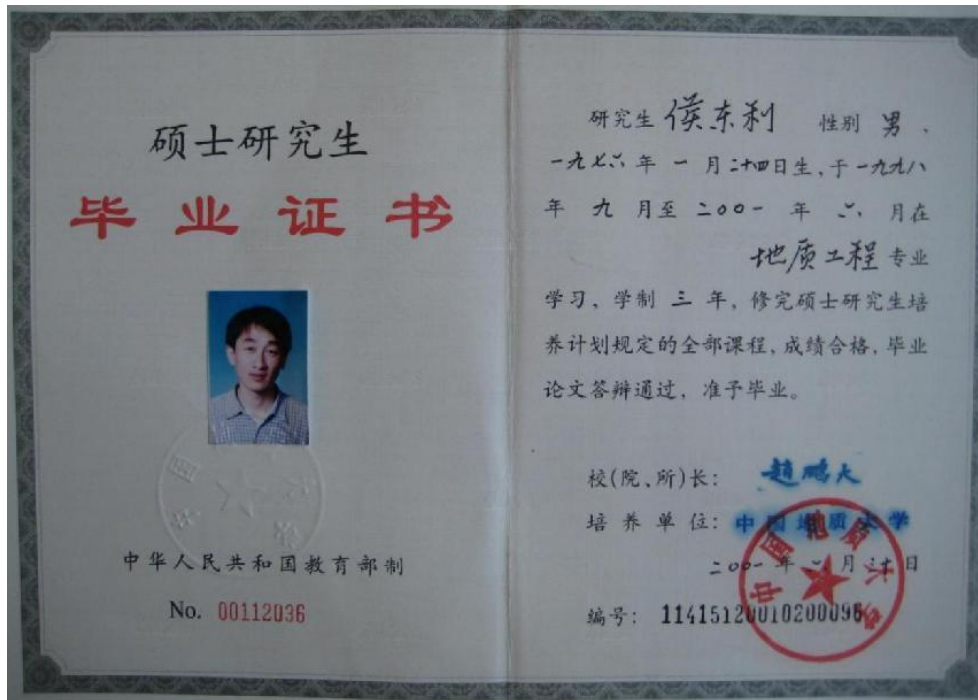 硕士研究生
毕业证书
中华人民共和国教育部制
No. 00112036
研究生 侯东利 性别 男、
一九七六年一月二十四日生,于一九九八
年九月至二〇〇一年六月在
地质工程专业
学习,学制三年,修完硕士研究生培
养计划规定的全部课程,成绩合格,毕业
论文答辩通过,准予毕业。
校(院、所)长: 赵鹏大
培养单位: 中国地质大学
二〇〇一年六月 日
编号: 11415120010200096
中国地质大学